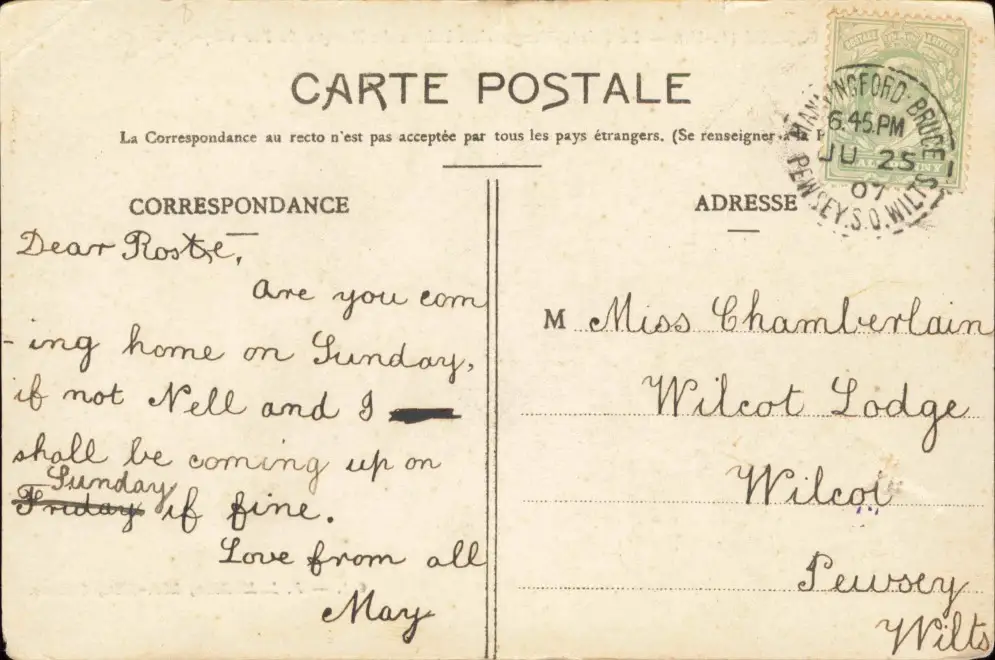 CARTE POSTALE
La Correspondance au recto n'est pas acceptée par tous les pays étrangers. (Se renseigner à la
CORRESPONDANCE
Dear Rose,
Are you com
-ing home on Sunday,
if not Nell and I
shall be coming up on
Sunday
Friday if fine.
Love from all
May
ADRESSE
M Miss Chamberlain
Wilcot Lodge
Wilcot
Pewsey
Wilts
MANNINGFORD-BRUCE
6.45.PM
JU 25
07
PEWSEY.S.O.WILTS